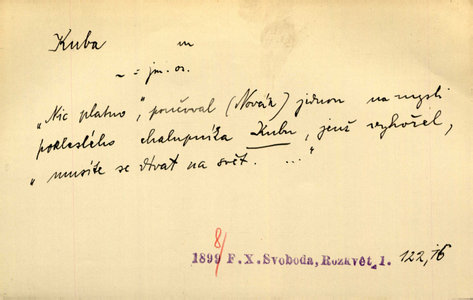 Kuba m
~ = jm. os.
„Nic platno", poučoval (Novák) jednou na mysli
pokleslého chalupníka Kubu, jenž vyhořel,
„musíte se dívat na svět. ..."
8/
1899 F. X. Svoboda, Rozkvět, 1. 122, 16